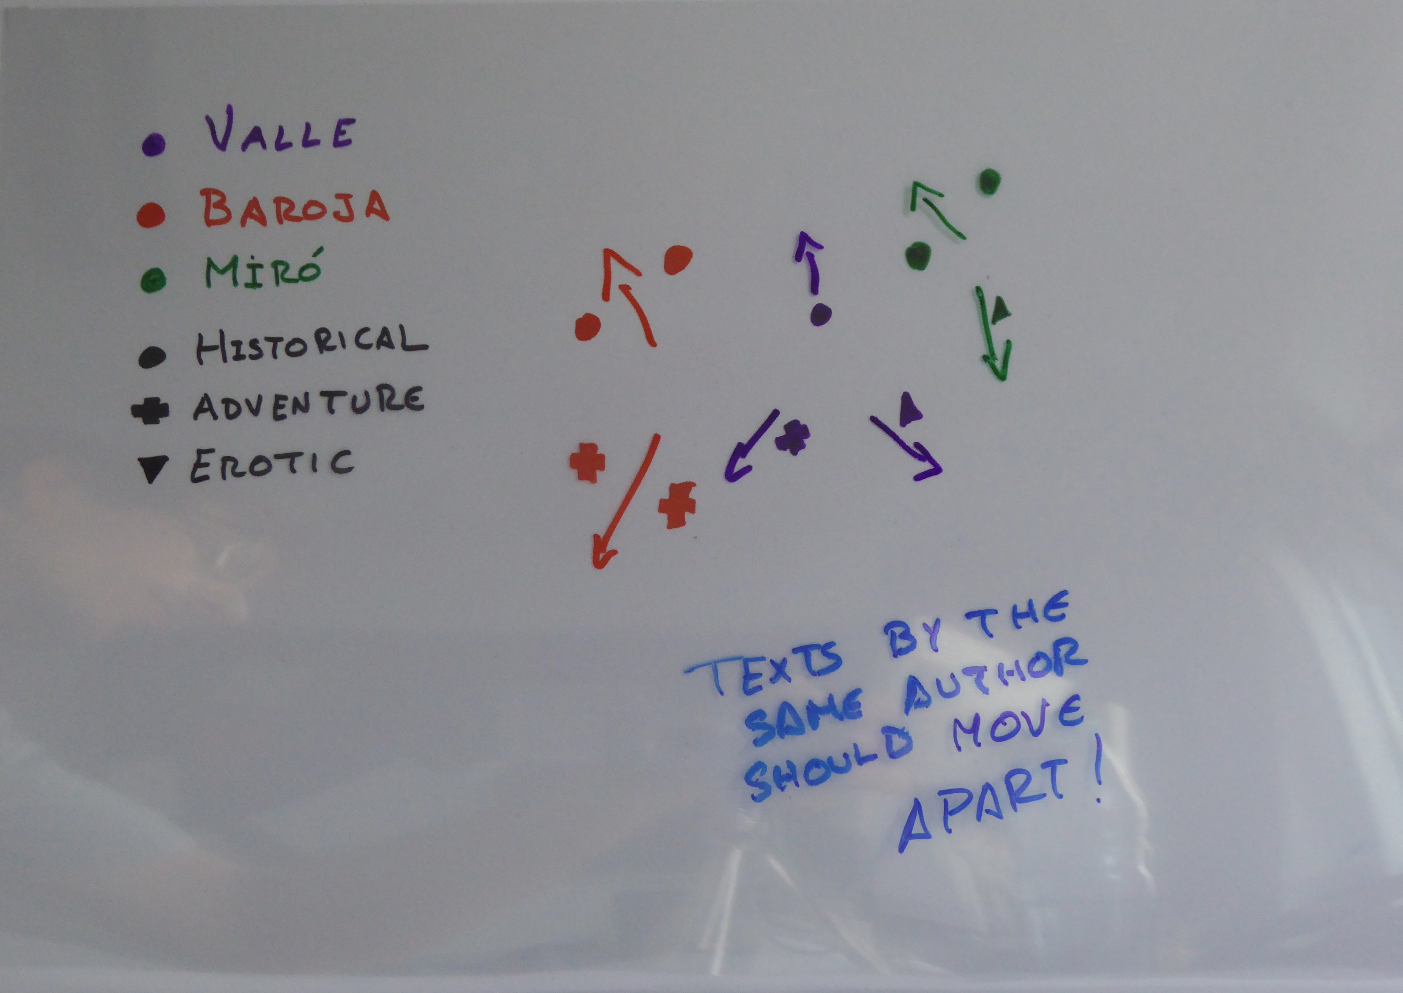 VALLE
BAROJA
MIRÓ
HISTORICAL
ADVENTURE
EROTIC
TEXTS BY THE
SAME AUTHOR
SHOULD MOVE
APART!